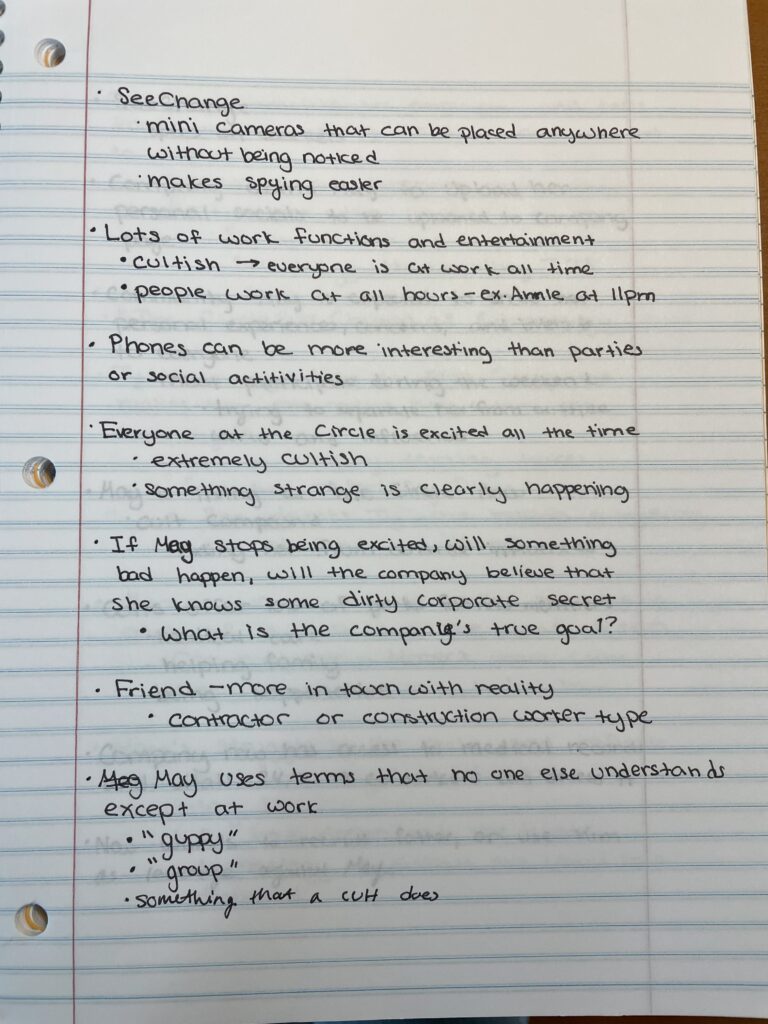 · SeeChange
· mini cameras that can be placed anywhere
without being noticed
· makes spying easier
· Lots of work functions and entertainment
· cultish → everyone is at work all time
· people work at all hours - ex. Annie at 11pm
· Phones can be more interesting than parties
or social actitivities
· Everyone at the Circle is excited all the time
· extremely cultish
· something strange is clearly happening
· If Mag stops being excited, will something
bad happen, will the company believe that
she knows some dirty corporate secret
· What is the company's true goal?
· Friend - more in touch with reality
· contractor or construction worker type
· Meg May uses terms that no one else understands
except at work
· "guppy"
· "group"
· something that a cult does